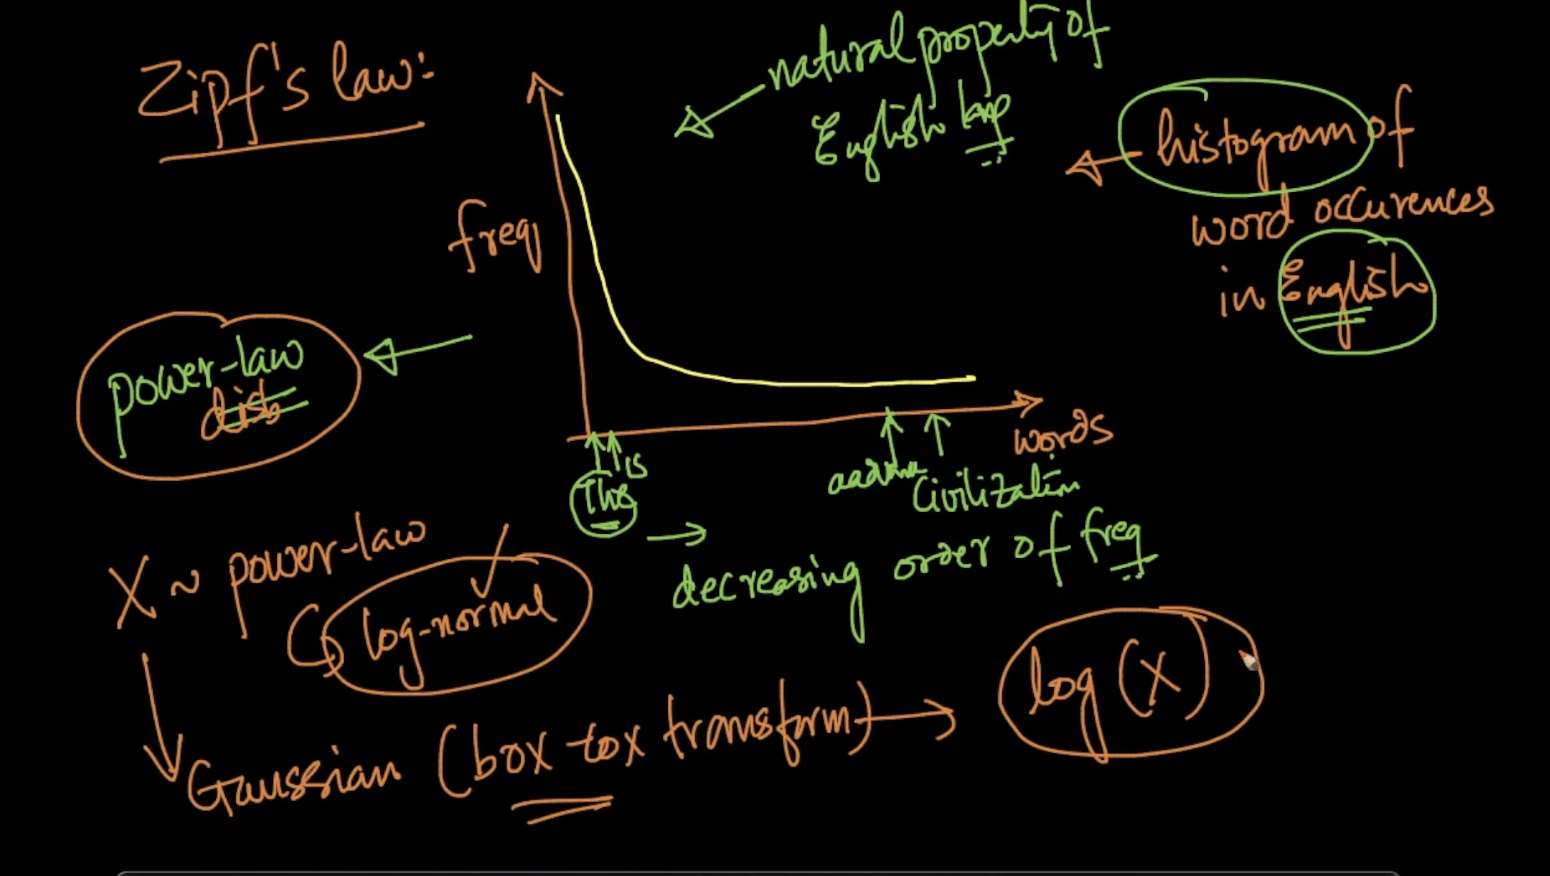 Zipf's law:
natural property of
English
histogram of
word occurences
in English
freq
power-law
words
is
The
Civilization
→ decreasing order of freq
X ~ power-law
log-normal
Gaussian (box-cox transform) → log(X)